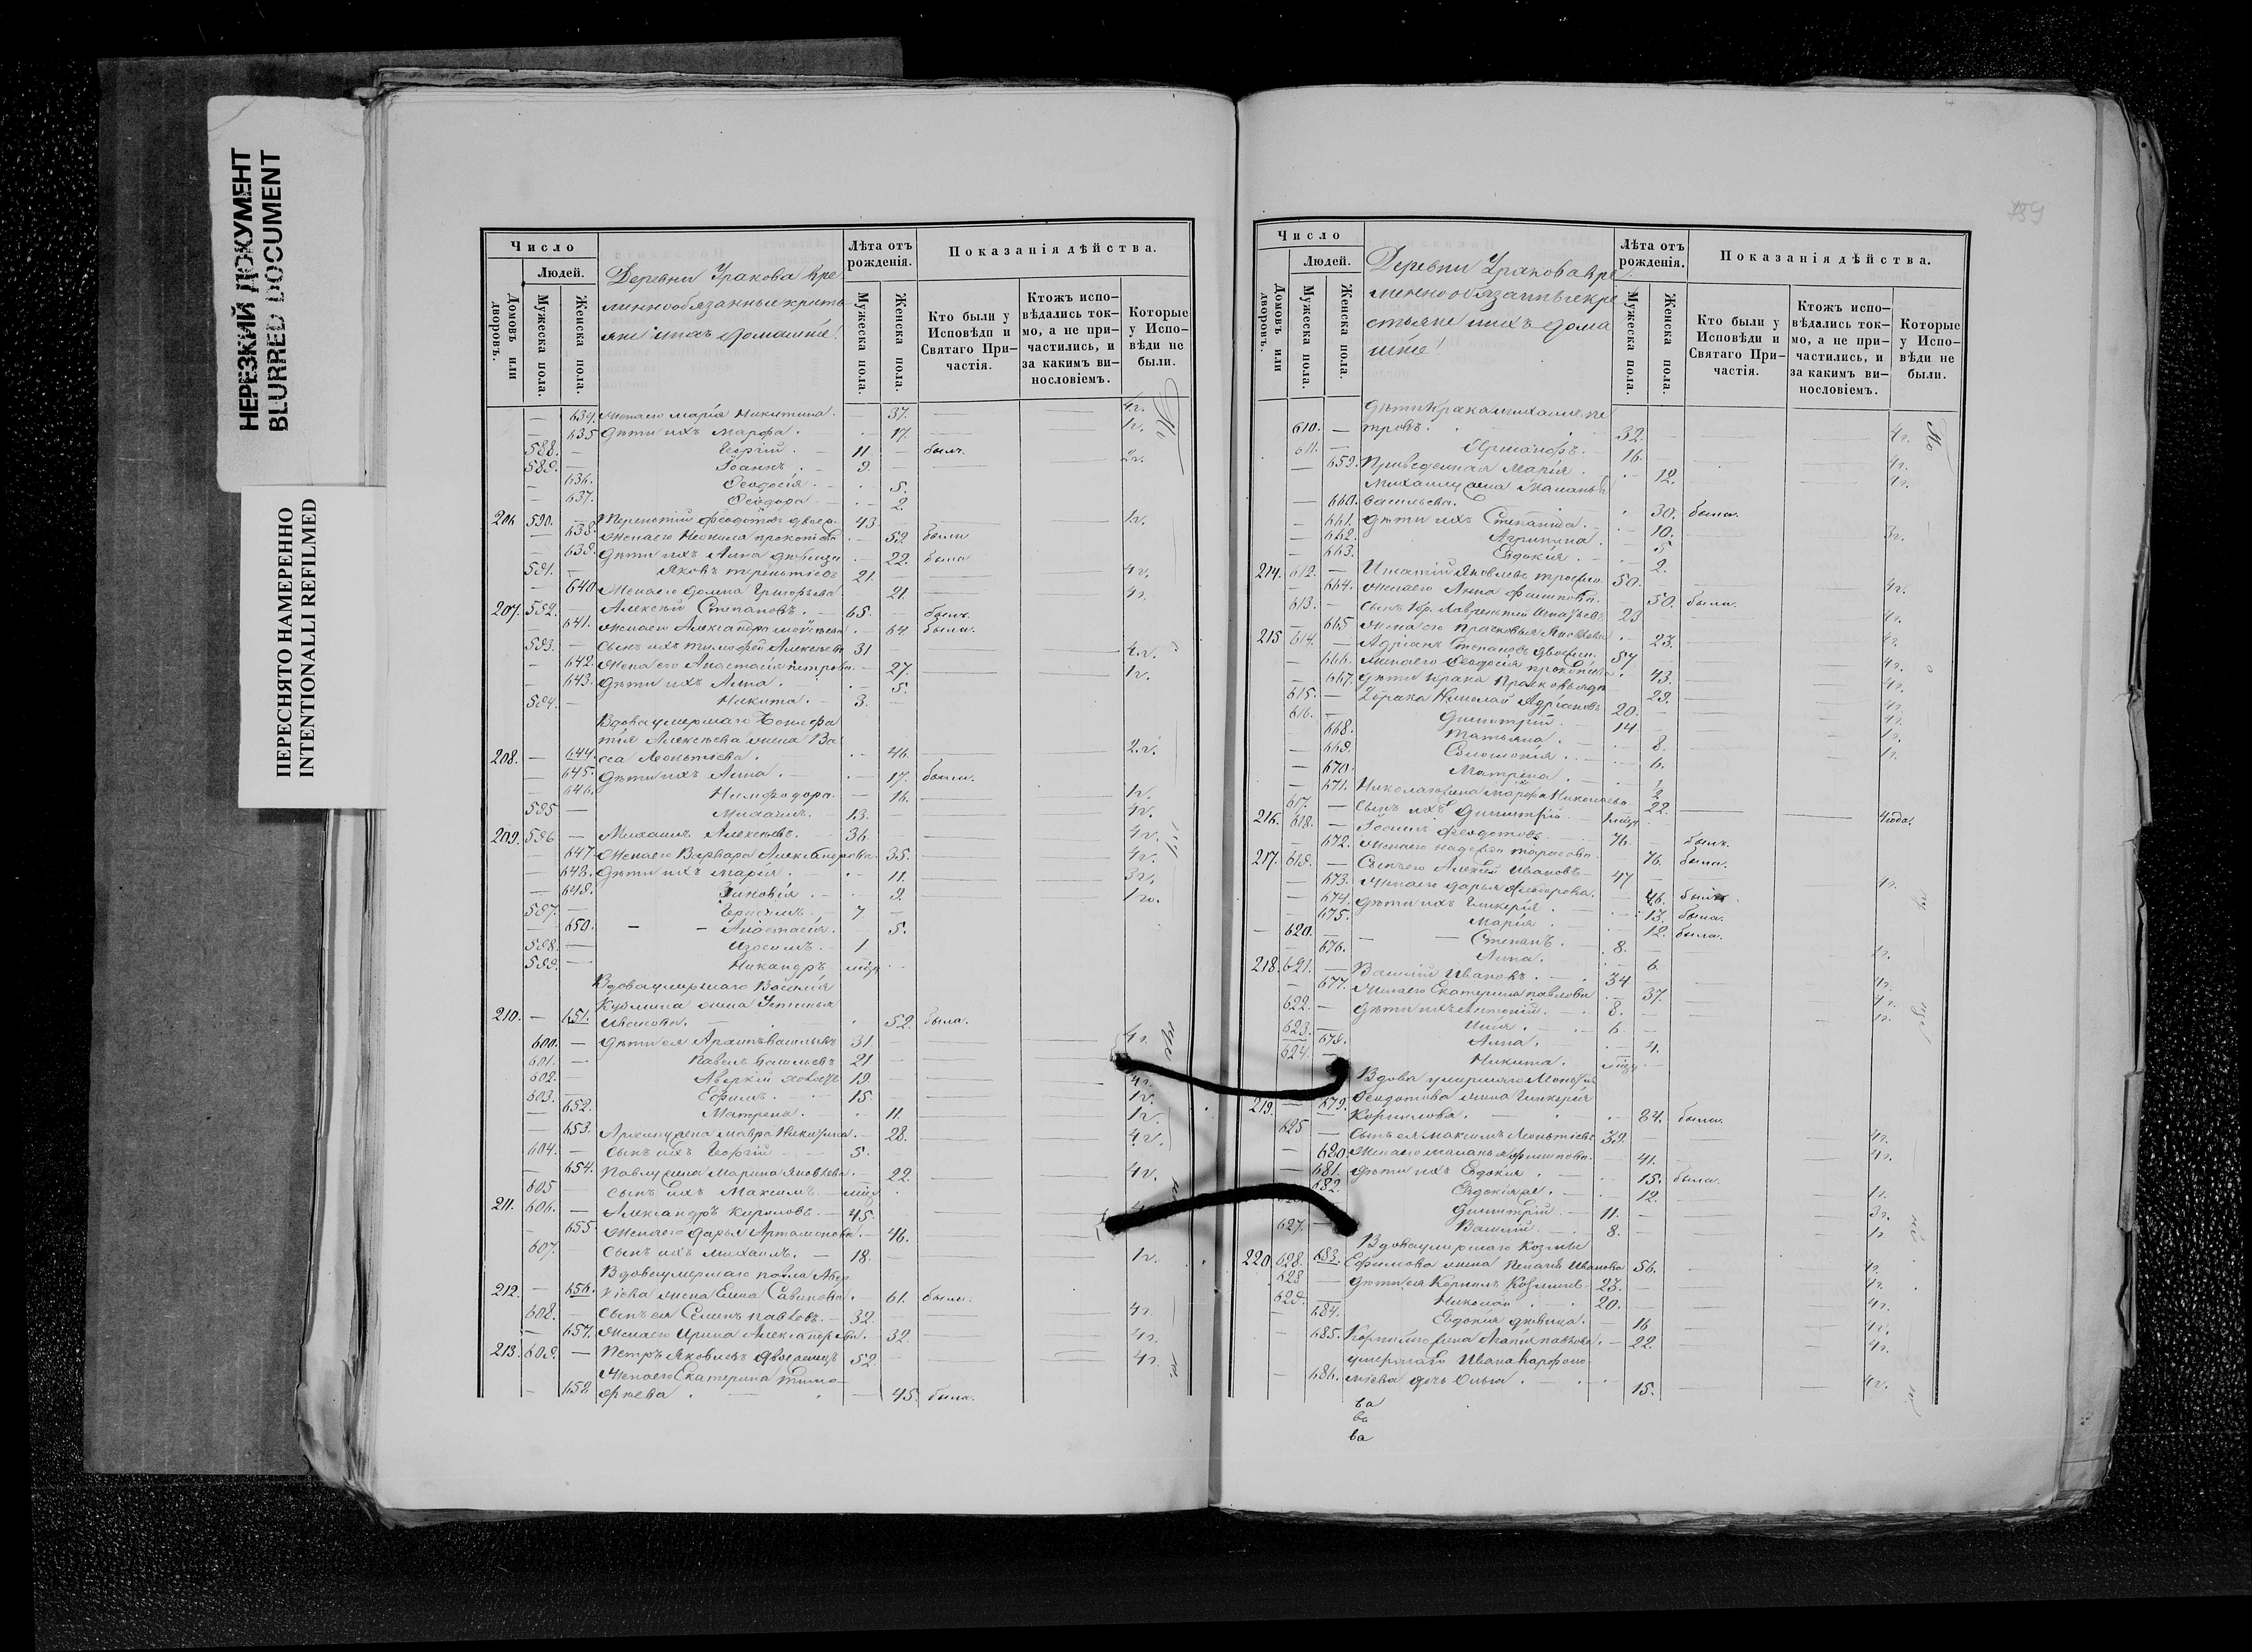 НЕРЕЗКИЙ ДОКУМЕНТ
BLURRED DOCUMENT
ПЕРЕСНЯТО НАМЕРЕННО
INTENTIONALLI REFILMED
Число
Людей.
Домовъ или дворовъ.
Мужеска пола.
Женска пола.
Деревни Уракова Вре
меннообязанные кресть
яне и ихъ домашніе!
Лѣта отъ рожденія.
Мужеска пола.
Женска пола.
Показанія дѣйства.
Кто были у Исповѣди и Святаго Причастія.
Ктожъ исповѣдались токмо, а не причастились, и за какимъ винословіемъ.
Которые у Исповѣди не были.
— 634. Жена его Марія Никитина. — 37. 4г.
— 635 Дѣти ихъ Марфа. 17. 1г.
588. — Георгій. 11. — былъ.
589. — Іоаннъ. 9. — 2г.
— 636. Ѳеодосія. 5.
— 637. Ѳеодора 2.
206 590. — Терентій Ѳедотовъ 43 1г.
— 638. Жена его Неонила Прокопіева 52 была
— 639. Дѣти ихъ Анна дѣвица 22. была
591. — Яковъ Терентіевъ 21. 4г.
— 640 Жена его Домна Григорьева 21. 4г.
207. 592. — Алексѣй Степановъ. 65. былъ.
641. Жена его Александра 64. была.
593. — Сынъ ихъ Тимофей Алексѣевъ 31 4г.
— 642. Жена его Анастасія Петрова 27. 1г.
— 643. Дѣти ихъ Анна. 5.
594. — Никита. 3. —
Вдова умершаго
Алексѣева жена Ва
208. — 644. сса Леонтіева. 46. 2.г.
— 645. Дѣти ихъ Анна. 17. была.
— 646. Нимфодора. 16. 1г.
595 — Михаилъ. 13. 4г.
209. 596 — Михаилъ Алексѣевъ. 36. 4г.
— 647 Жена его Варвара Александрова. 35. 4г.
— 648. Дѣти ихъ Марія. 11. 3г.
— 649. Зиновія 9. 1г.
597. — Герасимъ. 7 —
— 650. Анастасія. 5.
598. — Изосимъ. 1
599. — Никандръ
Вдова умершаго Василія
Кузмина жена Устинья
210. — 651. Иванова. 52. была.
600. — Дѣти ея Архипъ Васильевъ 31. 4г.
601. — Павелъ Васильевъ 21
602. — Аверкій 19. 4г.
603. — Ефимъ. 15. 1г.
— 652. Матрена. 11. 1г.
— 653. Архипу жена Мавра Никитина. 28. 4г.
604. — Сынъ ихъ Георгій 5.
— 654. Павлу жена Марина Яковлева. 22. 4г.
605 — Сынъ ихъ Максимъ.
211. 606. — Александръ Кириловъ. 45.
— 655. Жена его Дарья Артамонова. 46.
607. — Сынъ ихъ Михаилъ. 18. 1г.
Вдова умершаго Павла Авер
212. — 656. кіева жена Елена Савинова. 61. была.
608. — Сынъ ея Семенъ Павловъ. 32. 4г.
— 657. Жена его Ирина Александрова. 32. 4г.
213. 609. — Петръ Яковлевъ 52. 4г.
Жена его Екатерина Тимо
— 658 феева. 45. была.
159
Число
Людей.
Домовъ или дворовъ.
Мужеска пола.
Женска пола.
Деревни Уракова вре
меннообязанные кре
стьяне и ихъ дома
шніе!
Лѣта отъ рожденія.
Мужеска пола.
Женска пола.
Показанія дѣйства.
Кто были у Исповѣди и Святаго Причастія.
Ктожъ исповѣдались токмо, а не причастились, и за какимъ винословіемъ.
Которые у Исповѣди не были.
Пе
610. — тровъ. 32. 4г.
611. — 16. 4г.
— 659. Приведенная Марія 12. 4г.
Михаилу жена Маланья
— 660. Васильева. 30. была.
— 661. Дѣти ихъ Степанида. 10. 3г.
— 662. Агрипина. 5
— 663. Евдокія. 2.
214. 612. — Игнатій Яковлевъ 50. 4г.
— 664. Жена его Анна Филипова. 50. была.
613. — Лаврентій Игнатьевъ 23 4г.
— 665 Жена его Прасковья Яковлева 23. 4г.
215 614. — Адріанъ Степановъ 57 4г.
— 666. Жена его Ѳеодосія Прокопіева 43. 4г.
— 667. Дѣти Прасковья 23. 4г.
615. — Николай Адріановъ 20. 4г.
616. — Димитрій. 14 1г.
— 668. Татьяна. 8. 1г.
— 669. Соломонія. 6.
— 670. Матрена. 2
— 671. Николаю жена Марфа Николаева 22.
617. — Сынъ ихъ Димитрій 4года.
216. 618. — Іоаннъ Ѳеодотовъ 76. былъ.
— 672. Жена его Надежда Тарасова. 76. была.
217. 619. — Сынъ его Алексѣй Ивановъ 47 4г.
— 673. Жена его Дарья Ѳеодорова. 46. была.
— 674. Дѣти ихъ Гликерія. 13. была.
— 675. Марія 12. была.
— 620. — Степанъ. 8. 1г.
— 676. Анна. 6
218. 621. — Василій Ивановъ. 34 4г.
— 677. Жена его Екатерина Павлова 37. 4г.
622. — Дѣти ихъ Антоній. 8. 1г.
623. — Илія. 6
678. Анна. 4.
624. — Никита.
Вдова умершаго
Ѳеодотова жена Гликерія
219. — 679. Корнилова. 84. была.
625 — Сынъ ея Максимъ Леонтіевъ 39. 4г.
— 620 Жена его Маланья Филипова. 41. 4г.
— 681. Дѣти ихъ Евдокія 15. была.
682. Евдокія 12. 1г.
— Димитрій 11. 3г.
627. — Василій 8. 1г
Вдова умершаго Козмы
220. 628. 683. Ефимова жена Пелагія Иванова 56. 4г.
628 — Дѣти ея Корнилъ Козминъ 23. 4г.
629. — Николай 20. 4г.
— 684. Евдокія дѣвица. 16 4г.
— 685. Корнилію жена Павлова. 22. 4г.
умершаго Ивана
— 686. дочь Ольга 15. 4г.
ва
въ
ва